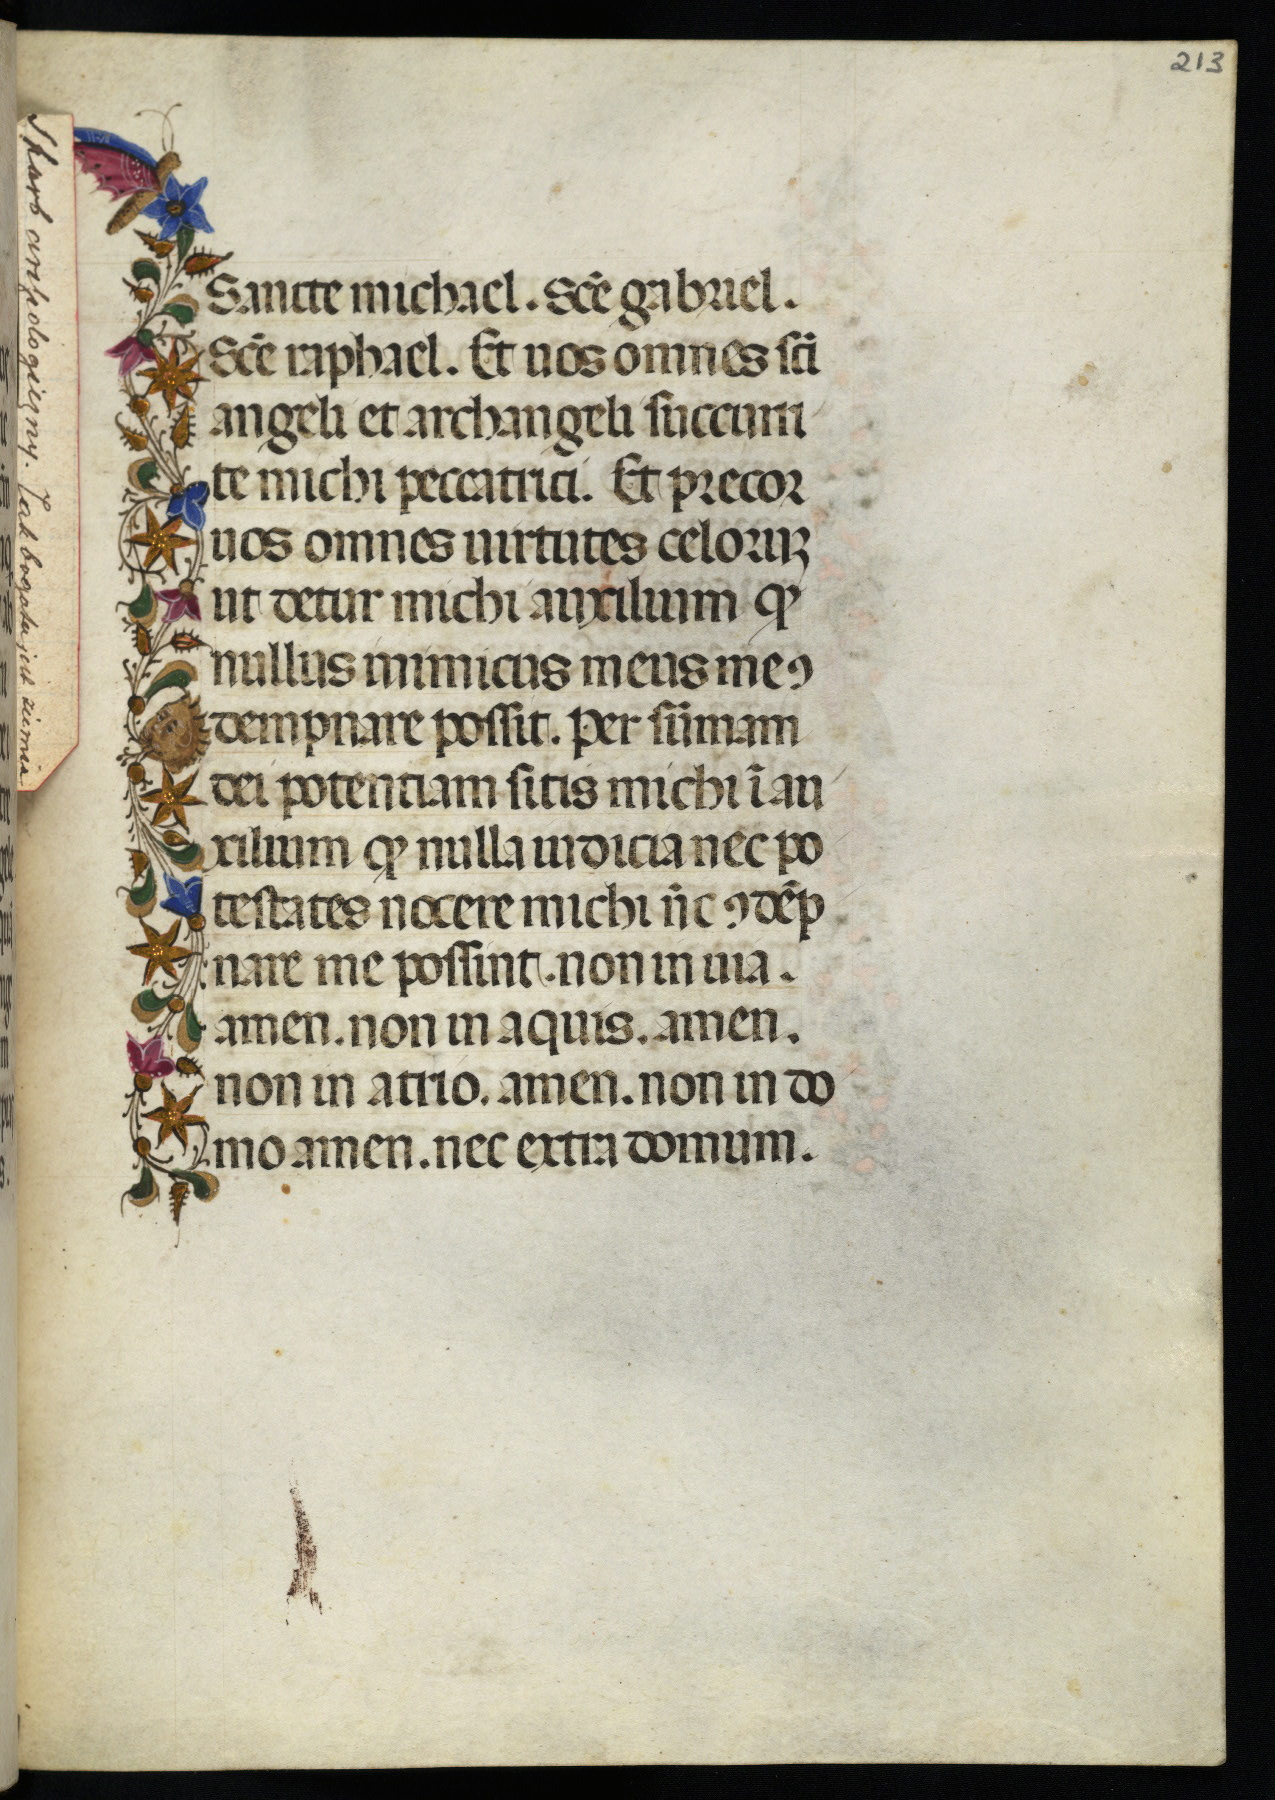 213
Skarb archeologiczny. Jak bogatą jest ziemia
Sancte michael. Scē gabriel.
Scē raphael. Et uos omnes sc̄i
angeli et archangeli succurri
te michi peccatrici. Et precor
uos omnes uirtutes celoruꝝ
ut detur michi auxilium ꝙ
nullus inimicus meus me ꝯ
dempnare possit. Per sūmam
dei potentiam sitis michi ī au
xilium ꝙ nulla iudicia nec po
testates nocere michi n̄c ꝯdēp
nare me possint. non in uia.
amen. non in aquis. amen.
non in atrio. amen. non in do
mo amen. nec extra domum.